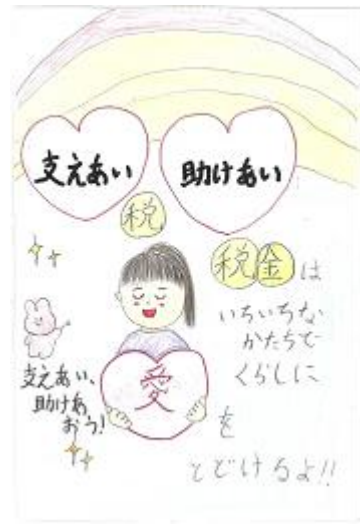 支えあい
助けあい
税
税金は
いろいろな
かたちで
くらしに
愛
を
とどけるよ!!
支えあい、
助けあ
おう!